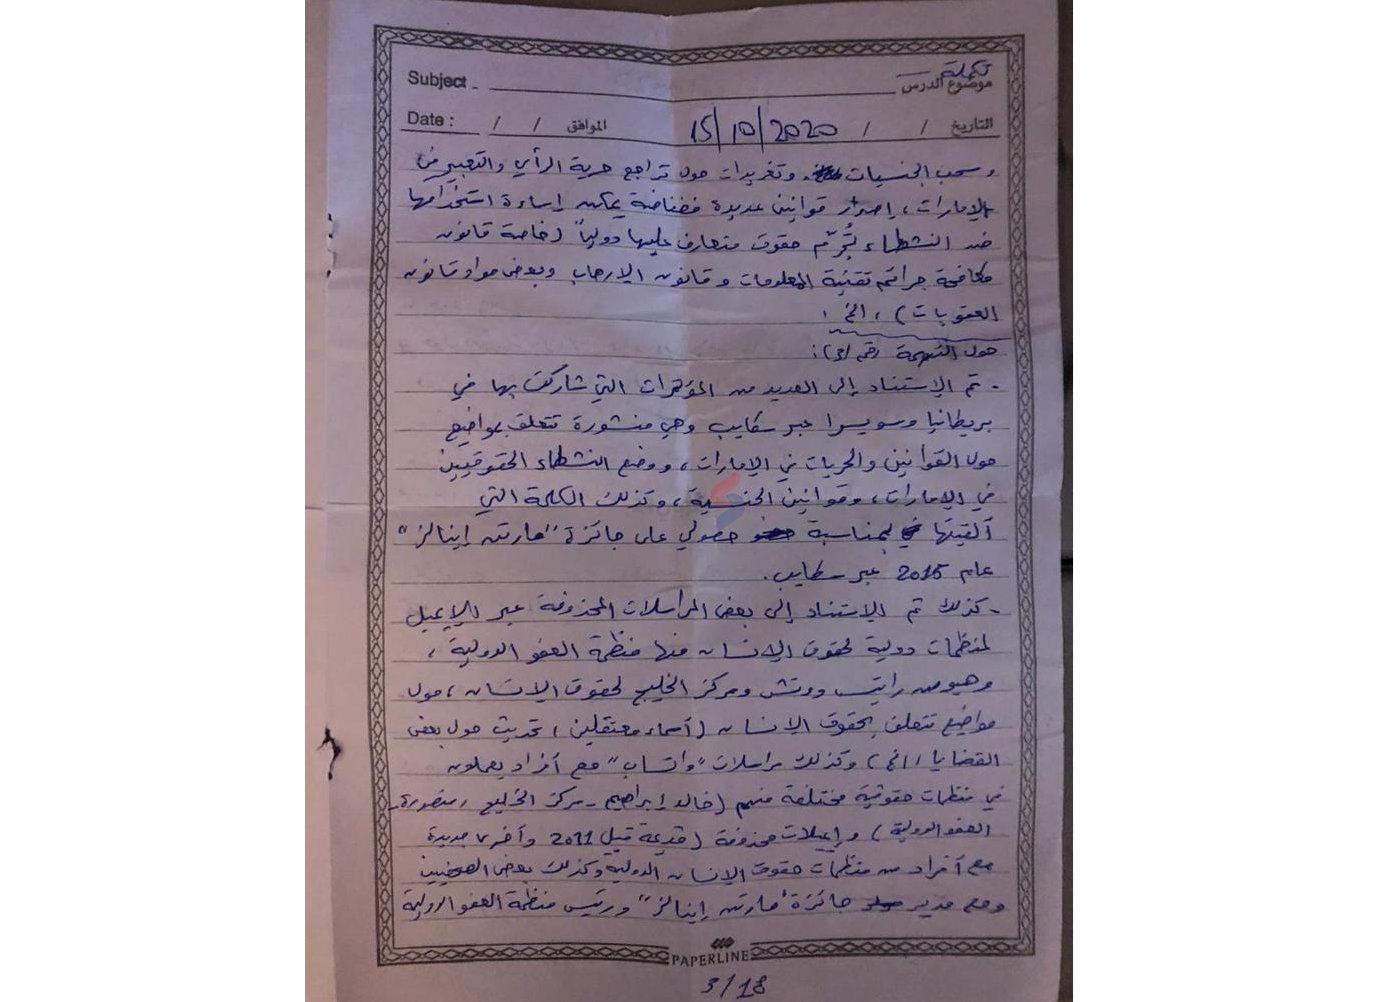 تكملة
Subject موضوع الدرس
Date : / / الموافق 15/10/2020 / / التاريخ
وسحب الجنسيات وتغريدات حول تراجع حرية الرأي والتعبير في
الإمارات، إصدار قوانين عديدة فضفاضة يمكن إساءة استخدامها
ضد النشطاء تُجرّم حقوق متعارف عليها دولياً (خاصة قانون
مكافحة جرائم تقنية المعلومات وقانون الإرهاب وبعض مواد قانون
العقوبات)، الخ.
حول التهمة رقم (3):
- تم الاستناد إلى العديد من المؤتمرات التي شاركت بها في
بريطانيا وسويسرا عبر سكايب وهي منشورة تتعلق بمواضيع
حول القوانين والحريات في الإمارات، ووضع النشطاء الحقوقيين
في الإمارات، وقوانين الجنسية، وكذلك الكلمة التي
ألقيتها بمناسبة حصولي على جائزة "مارتن إينالز"
عام 2015 عبر سكايب.
- كذلك تم الاستناد إلى بعض المراسلات المحذوفة عبر الإيميل
لمنظمات دولية لحقوق الإنسان منها منظمة العفو الدولية،
وهيومن رايتس ووتش ومركز الخليج لحقوق الإنسان، حول
مواضيع تتعلق بحقوق الإنسان (أسماء معتقلين، تحديث حول بعض
القضايا، الخ) وكذلك مراسلات "واتساب" مع أفراد يعملون
في منظمات حقوقية مختلفة منهم (خالد إبراهيم - مركز الخليج، منصورة -
العفو الدولية) وإيميلات محذوفة (قديمة قبل 2011 وأخرى جديدة
مع أفراد من منظمات حقوق الإنسان الدولية وكذلك بعض الصحفيين
ومع مدير جائزة "مارتن إينالز" ورئيس منظمة العفو الدولية
PAPERLINE
3/18